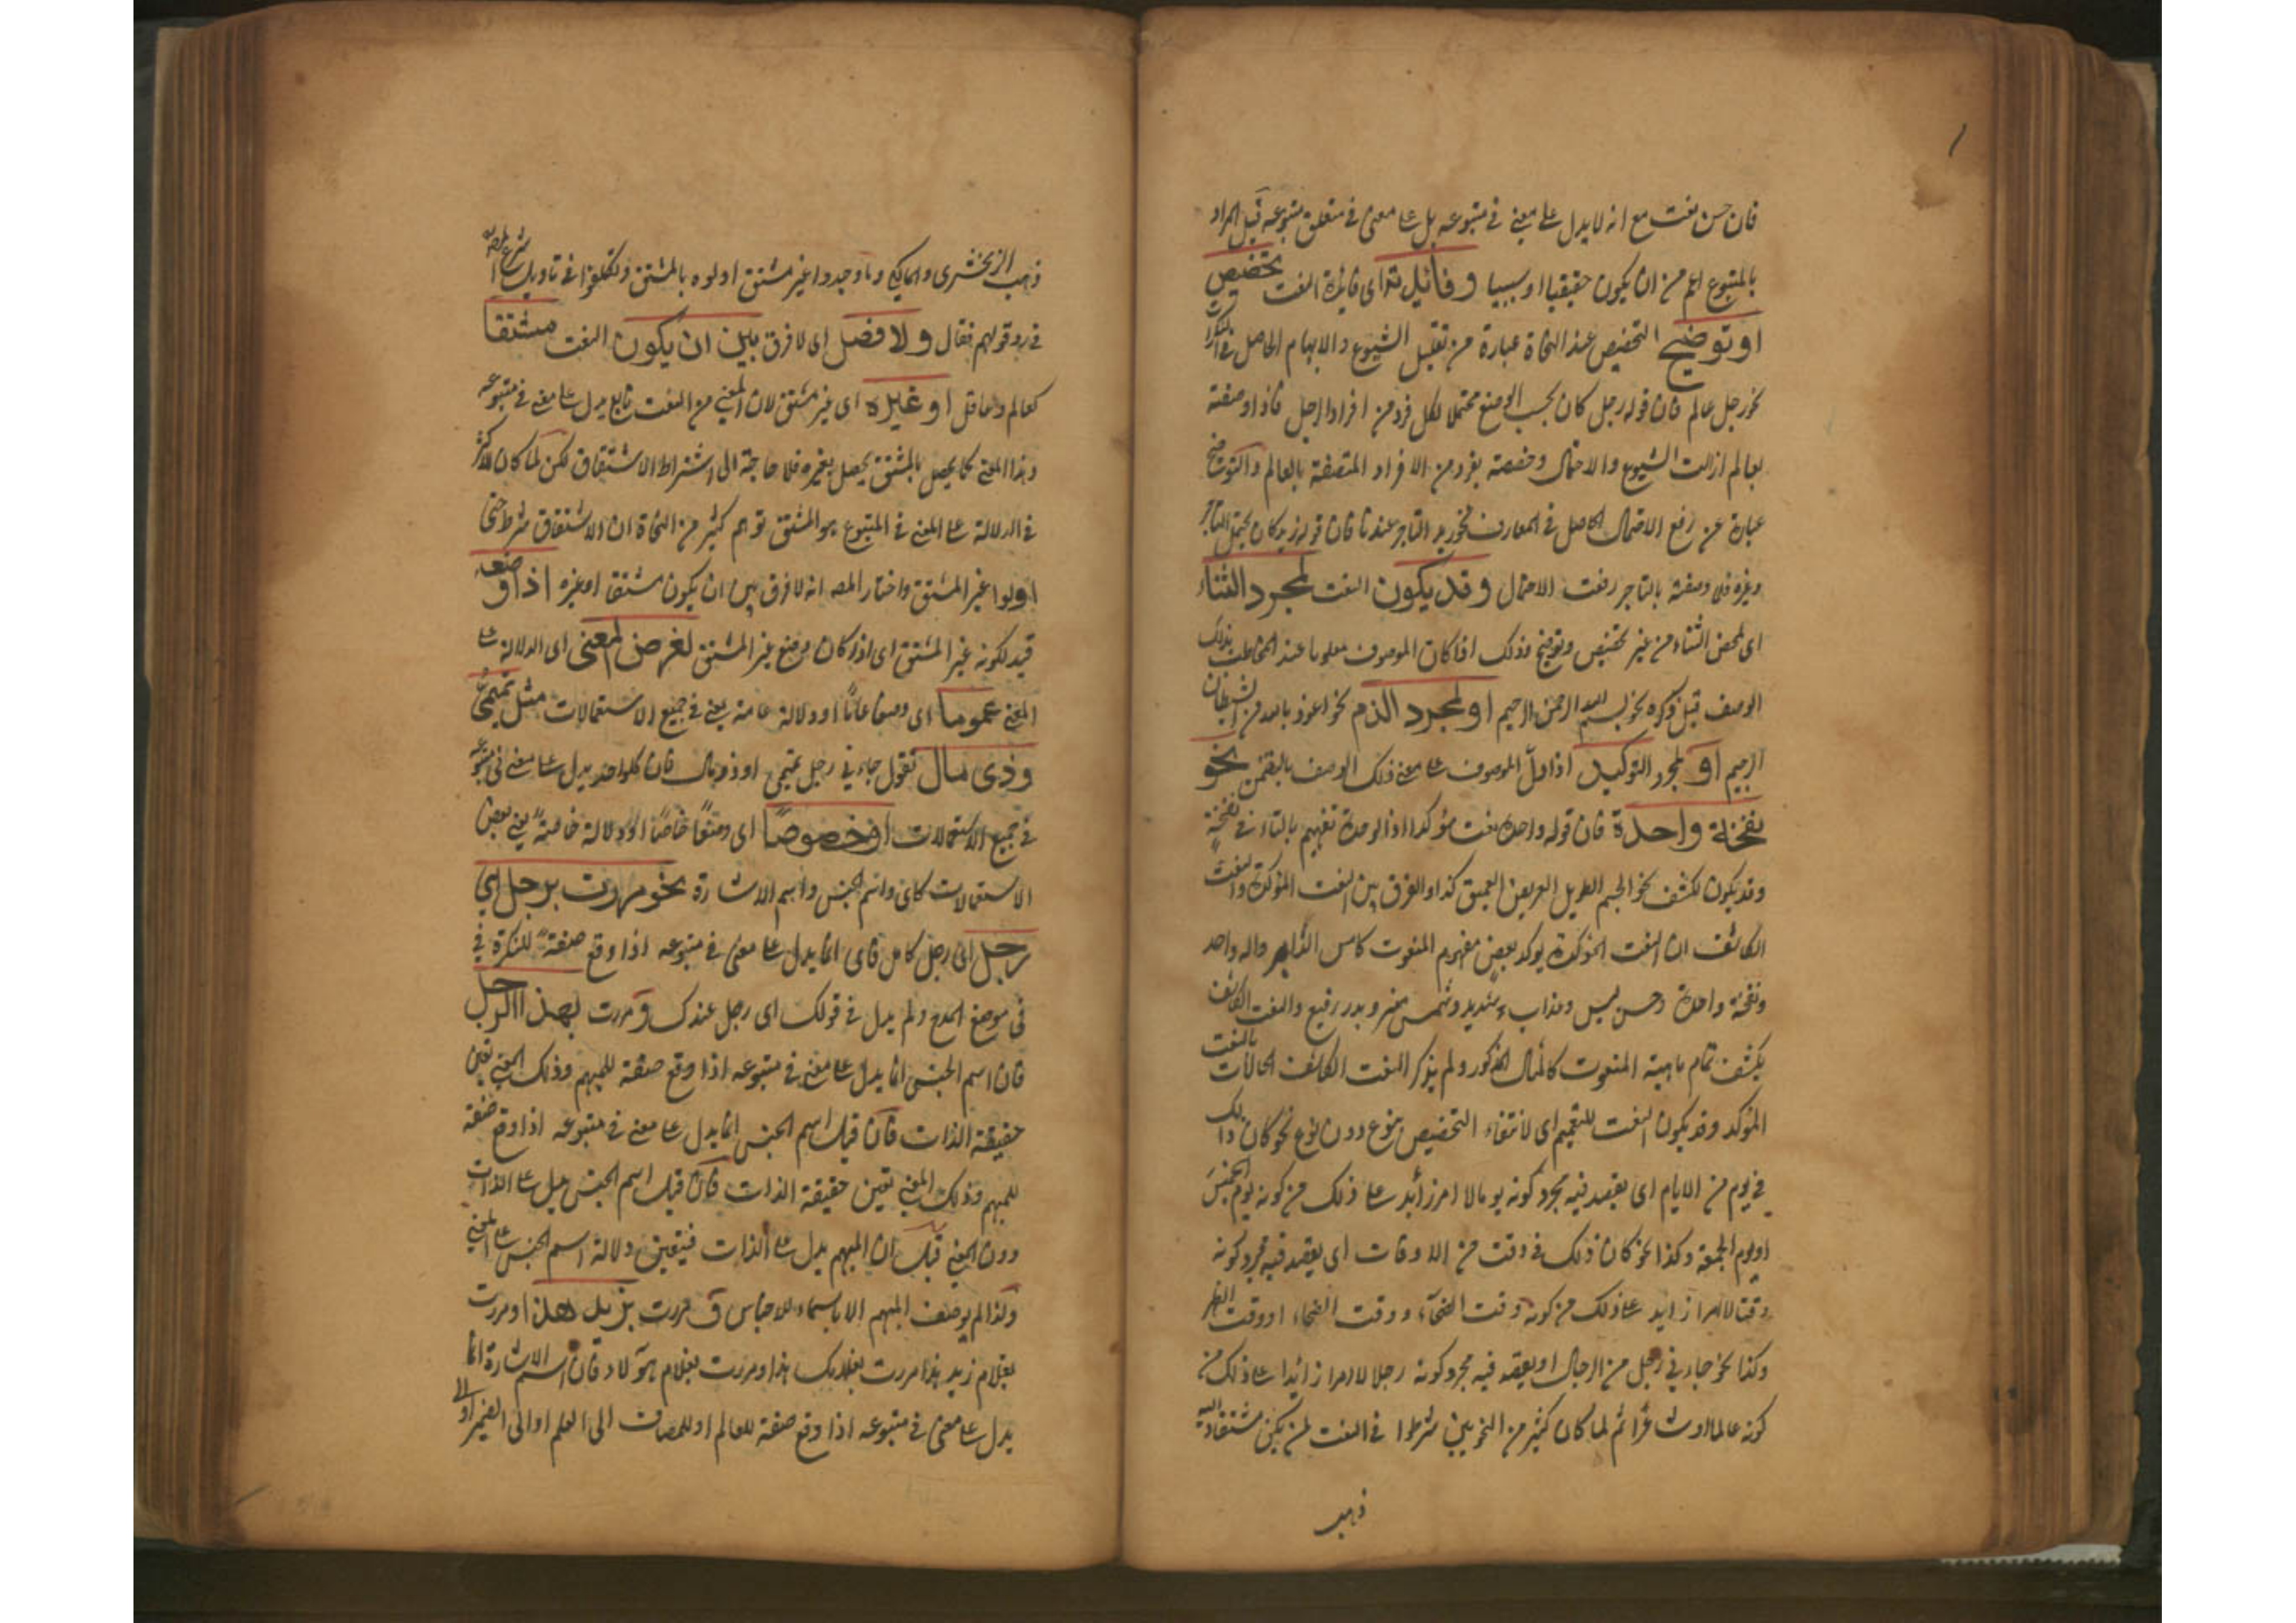 فان حسن نعت مع انه لا يدل على معنى في متبوعه بل على معنى في متعلق متبوعه قيل المراد
بالمتبوع اعم من ان يكون حقيقيا او سببيا وفائدته اى فائدة النعت تخصيص
او توضيح التخصيص عند النحاة عبارة من تقليل الشيوع والابهام الحاصل في النكرات
نحو رجل عالم فان قوله رجل كان بحسب الوضع محتملا لكل فرد من افراد الرجل فاذا وصفته
بعالم ازالت الشيوع والاحتمال وخصصته بفرد من الافراد المتصفة بالعالم والتوضيح
عبارة عن رفع الاحتمال الحاصل في المعارف نحو زيد التاجر عندنا فان قوله زيد كان يحتمل التاجر
وغيره فلما وصفته بالتاجر رفعت الاحتمال وقد يكون النعت لمجرد الثناء
اى لمحض الثناء من غير تخصيص وتوضيح وذلك اذا كان الموصوف معلوما عند المخاطب بذلك
الوصف قبل ذكره نحو بسم الله الرحمن الرحيم او لمجرد الذم نحو اعوذ بالله من الشيطان
الرجيم او لمجرد التوكيد اذا دل الموصوف على معنى ذلك الوصف بالتضمن نحو
نفخة واحدة فان قوله واحدة نعت مؤكد اذ الوحدة تفهم بالتاء في نفخة
وقد يكون لكشف نحو الجسم الطويل العريض العميق كذا والفرق بين النعت المؤكدة والنعت
الكاشف ان النعت المؤكدة يوكد بعض مفهوم المنعوت كامس الدابر واله واحد
ونفخة واحدة وحسن وعذاب شديد وشمس منير وبدر رفيع والنعت الكاشف
يكشف تمام ماهية المنعوت كالمثال المذكور ولم يذكر النعت الكاشف بالنعت
المؤكد وقد يكون النعت للتعميم اى لانتفاء التخصيص بنوع دون نوع نحو كان ذلك
في يوم من الايام اى يقصد فيه مجرد كونه يوما لا امر زائد على ذلك من كونه يوم الخميس
او يوم الجمعة وكذا نحو كان ذلك في وقت من الاوقات اى يقصد فيه مجرد كونه
وقتا لا امرا زايد على ذلك من كونه وقت ووقت الضحاء او وقت الظهر
وكذا نحو جاءني رجل من الرجال او يقصد فيه مجرد كونه رجلا لا امرا زائدا على ذلك من
كونه عالما او شاعرا ثم لما كان كثير من النحويين شرطوا في النعت
ذهب
ذهب الزمخشري والمالكي وما وجدوا غير مشتق اولوه بالمشتق وتكلفوا في تاويله شرع المص
في رد قولهم فقال ولا فصل اى لا فرق بين ان يكون النعت مشتقا
كعالم وعاقل او غيره اى غير مشتق لان المعنى من النعت تابع يدل على معنى في متبوعه
وهذا المعنى كما يحصل بالمشتق يحصل بغيره فلا حاجة الى اشتراط الاشتقاق لكن لما كان الاكثر
في الدلالة على المعنى في المتبوع هو المشتق توهم كثير من النحاة ان الاشتقاق شرط حتى
اولوا غير المشتق واختار المص انه لا فرق بين ان يكون مشتقا او غيره اذا وضعه
قيد لكونه غير المشتق اى اذا كان وضع غير المشتق لغرض المعنى اى الدلالة على
المعنى عموما اى وضعا عاما او دلالة عامة يعني في جميع الاستعمالات مثل تميمي
وذى مال تقول جاءني رجل تميمي او ذو مال فان كلواحد يدل على معنى في متبوعه
في جميع الاستعمالات او خصوصا اى وضعا خاصا او دلالة خاصة يعني بعض
الاستعمالات كاى واسم الجنس واسم الاشارة نحو مررت برجل اي
رجل اى رجل كامل فاى انما يدل على معنى في متبوعه اذا وقع صفة للنكرة في
في موضع المدح ولم يدل في قولك اى رجل عندك ومررت بهذا الرجل
فان اسم الجنس انما يدل على معنى في متبوعه اذا وقع صفة للمبهم وذلك المعنى تعين
حقيقة الذات فان قيل اسم الجنس انما يدل على معنى في متبوعه اذا وقع صفة
للمبهم وذلك المعنى تعين حقيقة الذات فان قيل اسم الجنس يدل على الذات
دون المعنى قيل ان المبهم يدل على الذات فيتعين دلالة اسم الجنس على المعنى
ولذا لم يوصف المبهم الا باسماء الاجناس و مررت بزيد هذا او مررت
بغلام زيد هذا مررت بغلامك هذا ومررت بغلام هؤلاء فان اسم الاشارة انما
يدل على معنى في متبوعه اذا وقع صفة للعالم او للمضاف الى العلم او الى الضمير او الى